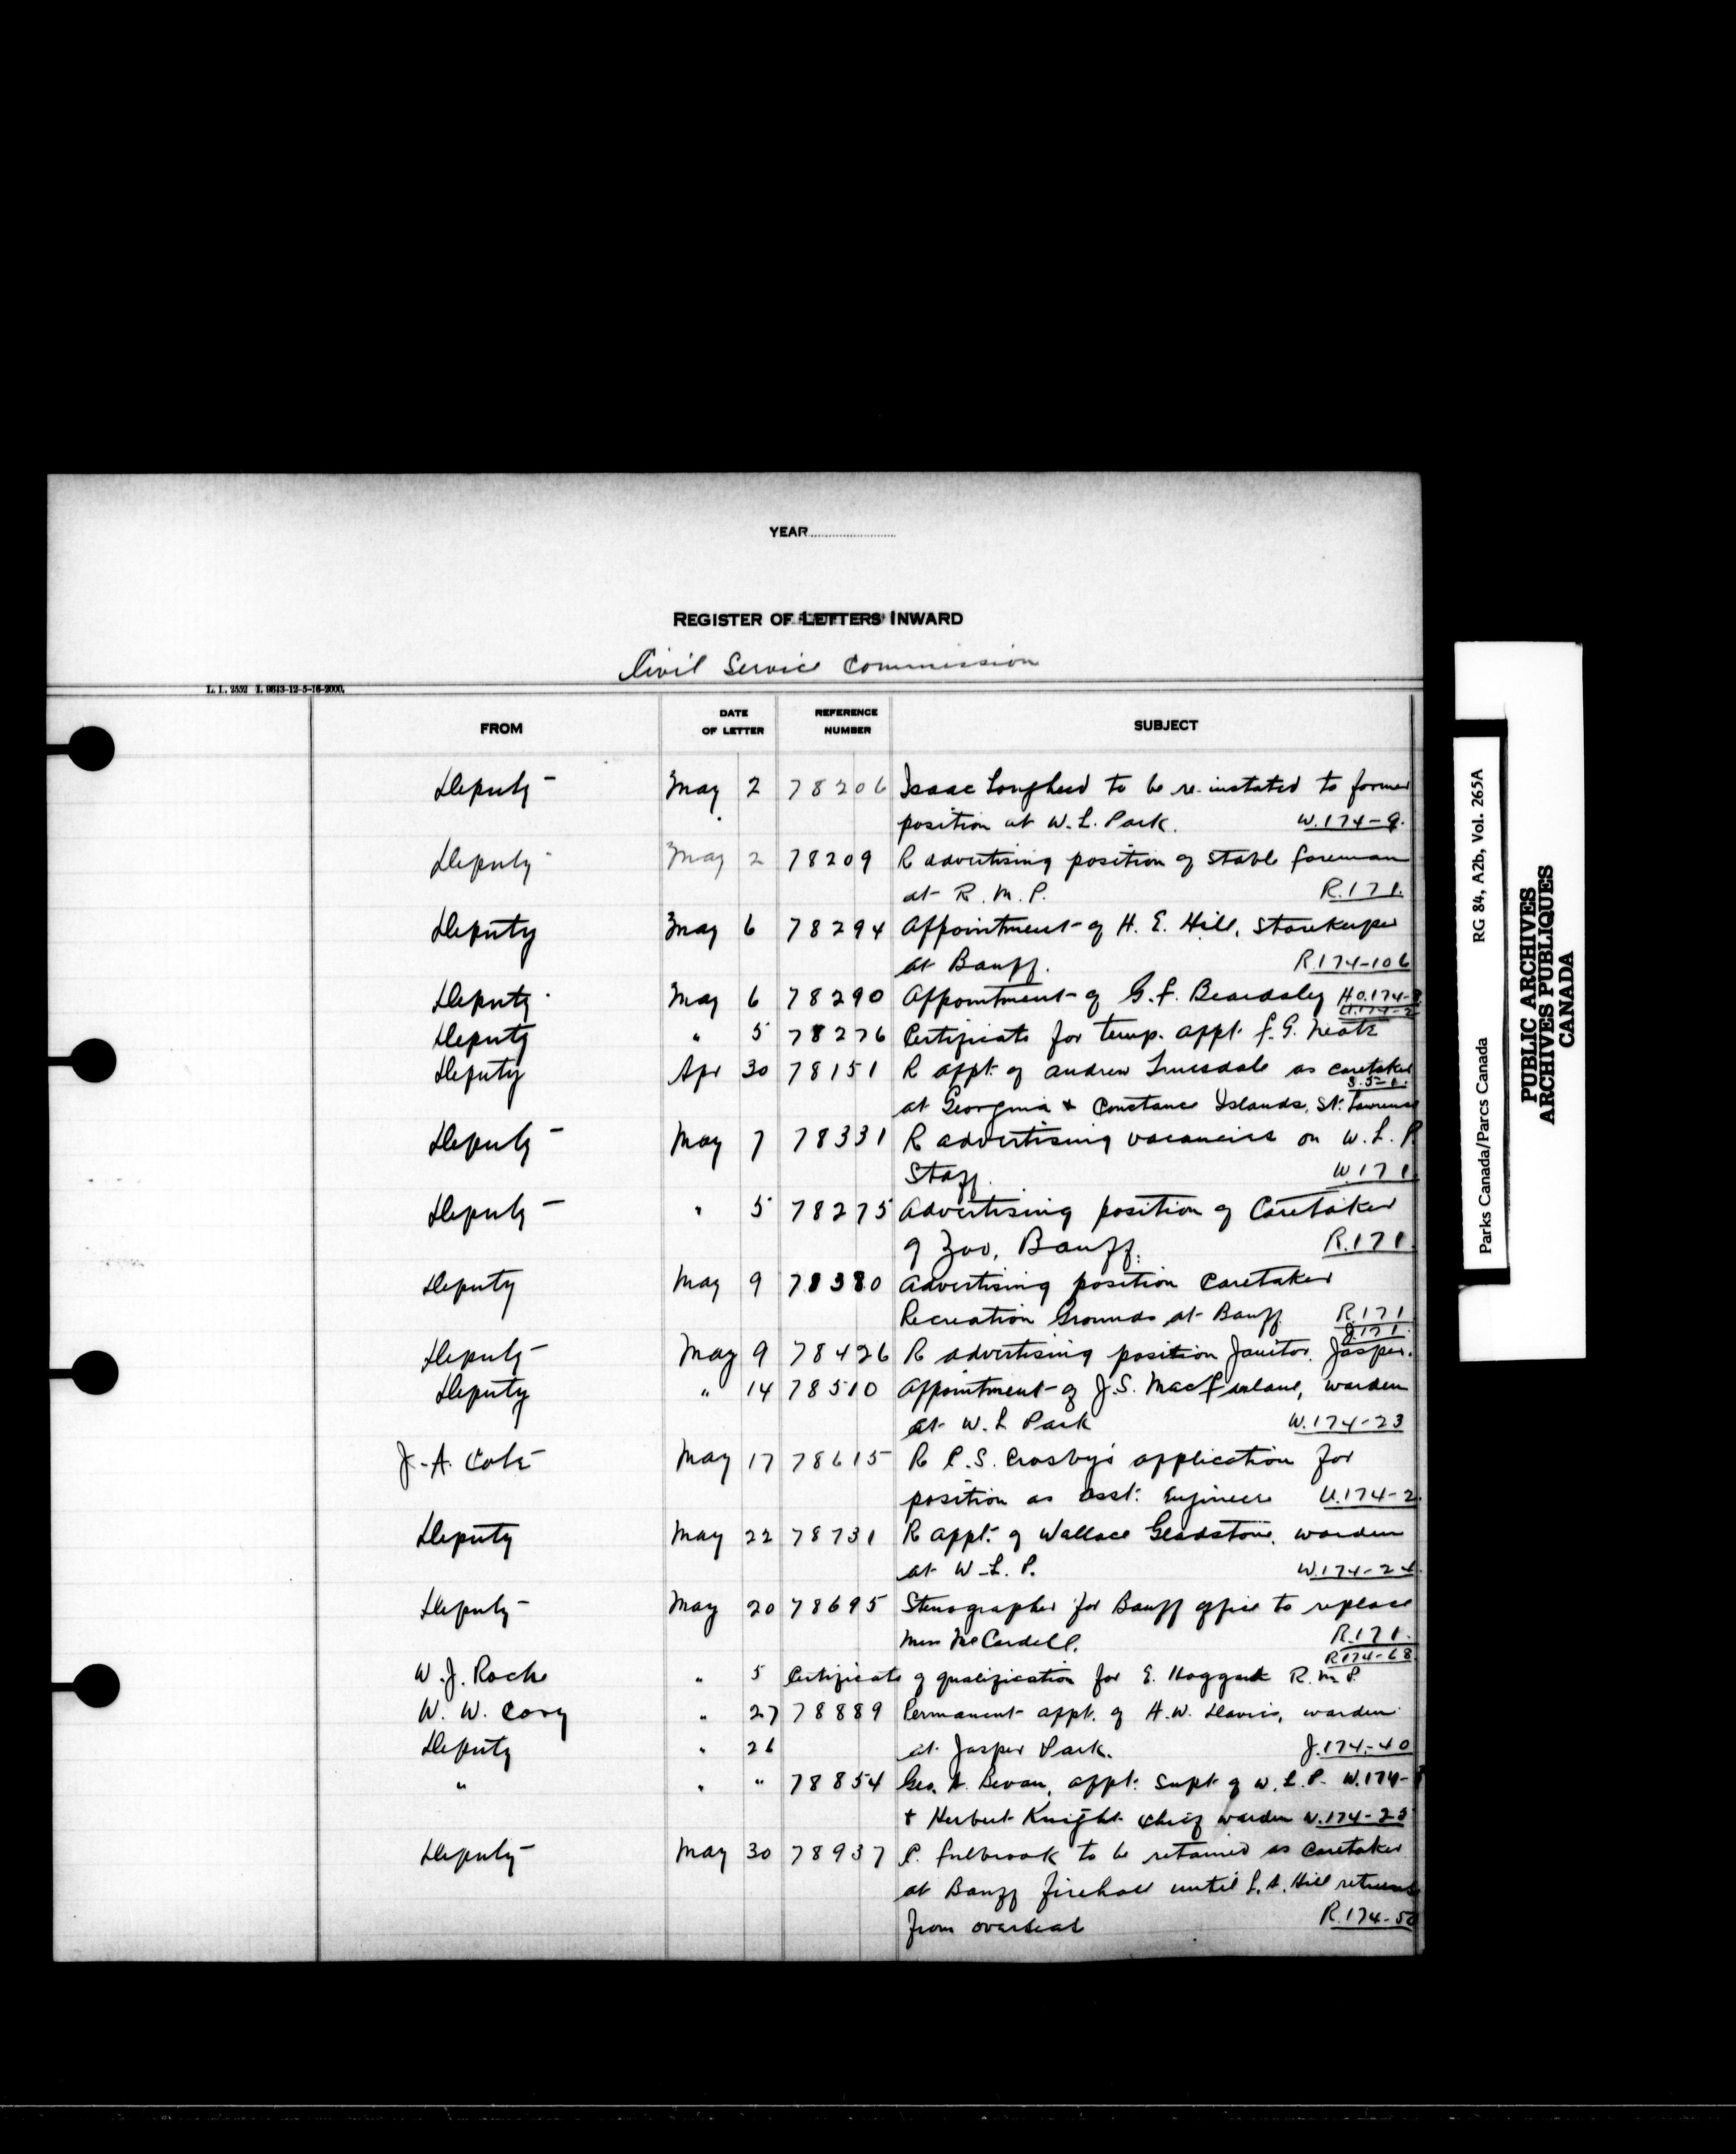 YEAR
REGISTER OF LETTERS INWARD
Civil Service Commission
L. L. 2552 I. 9613-12-5-16-2000.
FROM DATE OF LETTER REFERENCE NUMBER SUBJECT
Deputy May 2 78206 Isaac Lougheed to be re-instated to former
position at W.L. Park. W.174-9.
Deputy May 2 78209 R advertising position of stable foreman
at R.M.P. R.171.
Deputy May 6 78294 Appointment of H. E. Hill, Storekeeper
at Banff. R.174-106
Deputy May 6 78290 Appointment of G.F. Beardsley H.O.174-
U.174-2
Deputy " 5 78276 Certificate for temp. appt. F.G. Neate
Deputy Apr 30 78151 R appt. of Andrew Truesdale as caretaker
S.5-1.
at Georgina & Constance Islands, St. Lawrence
Deputy May 7 78331 R advertising vacancies on W.L.P
Staff. W.171
Deputy " 5 78275 Advertising position of Caretaker
of Zoo, Banff. R.171.
Deputy May 9 78380 Advertising position Caretaker
Recreation Grounds at Banff R.171
J.171.
Deputy May 9 78426 R advertising position Janitor, Jasper.
Deputy " 14 78510 Appointment of J.S. MacFarlane, warden
at W.L Park W.174-23
J.A. Cote May 17 78615 R P.S. Crosby's application for
position as asst. Engineer U.174-2.
Deputy May 22 78731 R appt. of Wallace Gladstone, warden
at W.L.P. W.174-24
Deputy May 20 78695 Stenographer for Banff office to replace
Miss McCardell. R.171.
R174-68
W.J. Roche " 5 Certificate of qualification for E. Haggard R.M.P.
W. W. Cory " 27 78889 Permanent appt. of H.W. Davis, warden
Deputy " 26 at Jasper Park. J.174-40
" " " 78854 Geo. A. Bevan, appt. Supt. of W.L.P. W.174-
+ Herbert Knight chief warden W.174-25
Deputy May 30 78937 P. Fulbrook to be retained as caretaker
at Banff firehall until L.A. Hill returns
from overseas R.174-50
Parks Canada/Parcs Canada RG 84, A2b, Vol. 265A
PUBLIC ARCHIVES
ARCHIVES PUBLIQUES
CANADA